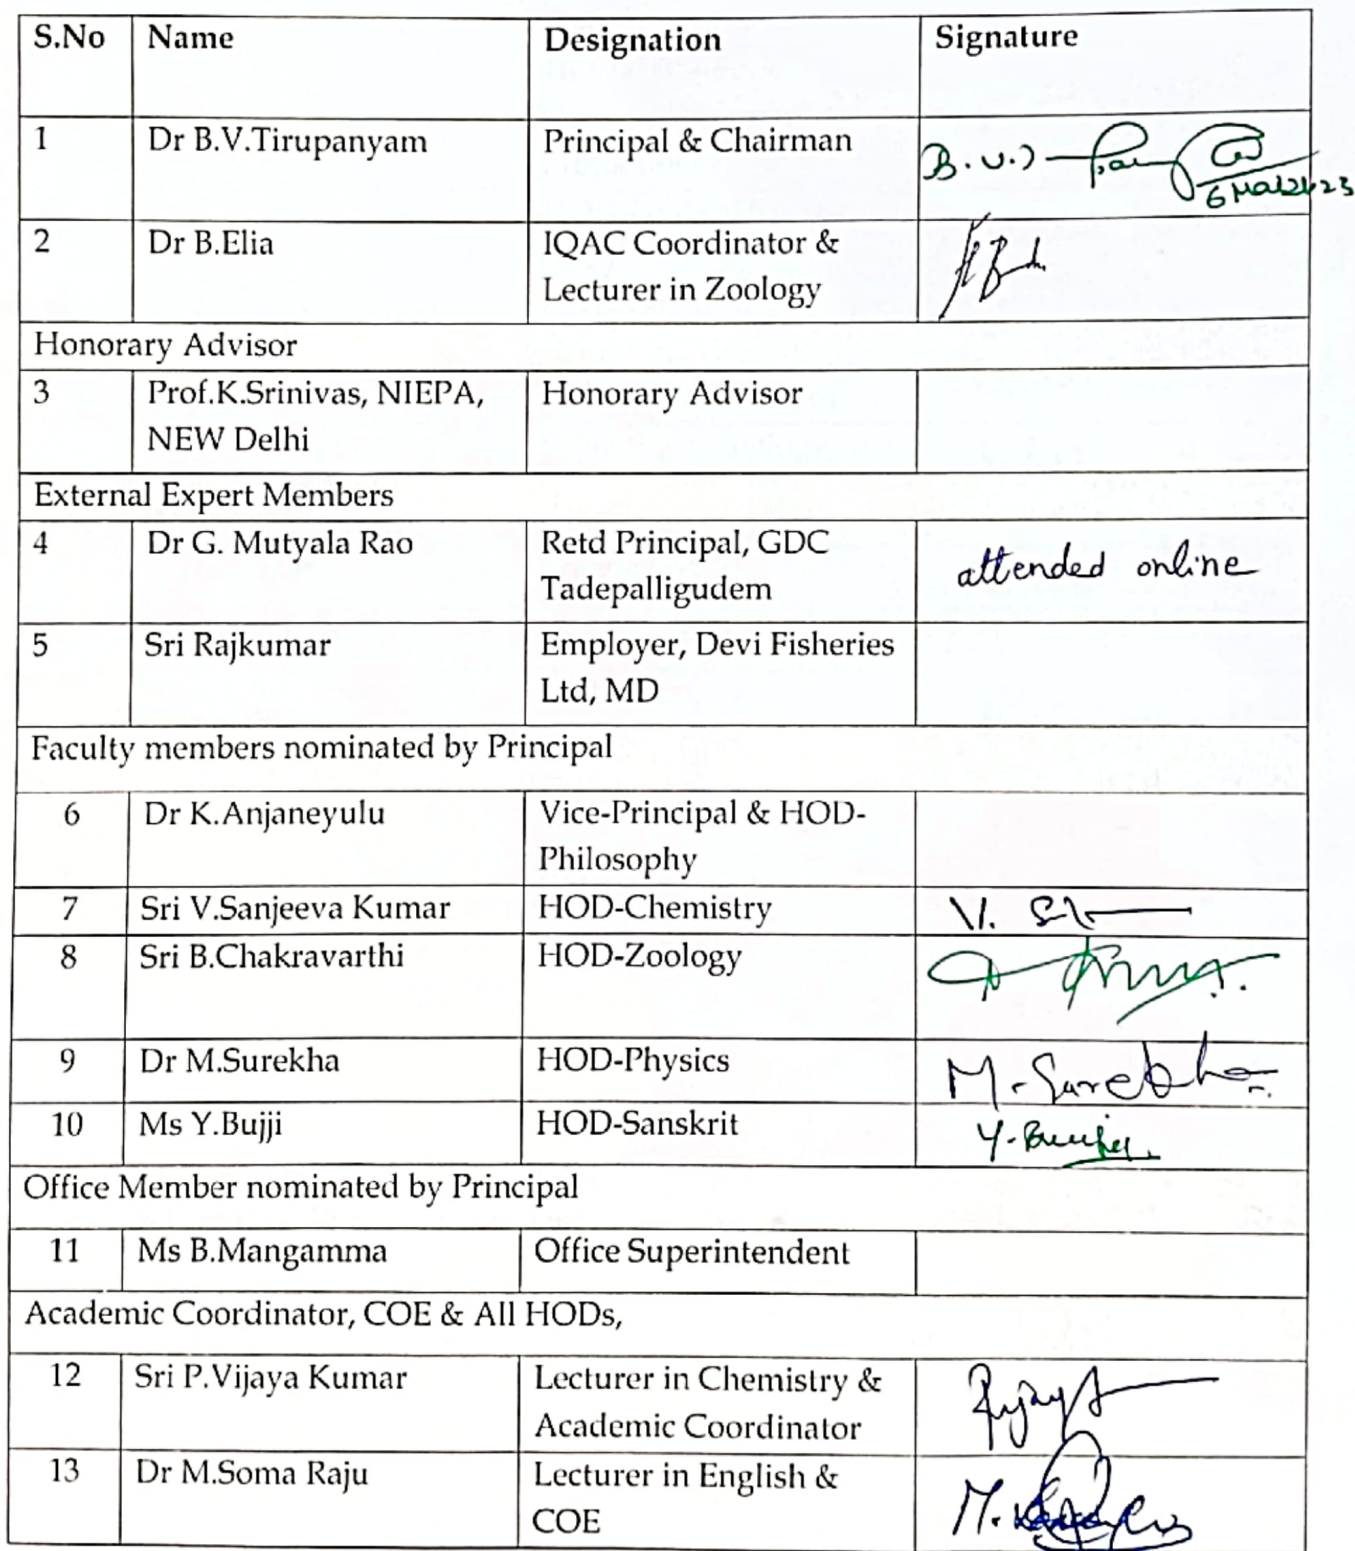 S.No Name Designation Signature
1 Dr B.V.Tirupanyam Principal & Chairman B.V.
2 Dr B.Elia IQAC Coordinator &
Lecturer in Zoology
Honorary Advisor
3 Prof.K.Srinivas, NIEPA, Honorary Advisor
NEW Delhi
External Expert Members
4 Dr G. Mutyala Rao Retd Principal, GDC attended online
Tadepalligudem
5 Sri Rajkumar Employer, Devi Fisheries
Ltd, MD
Faculty members nominated by Principal
6 Dr K.Anjaneyulu Vice-Principal & HOD-
Philosophy
7 Sri V.Sanjeeva Kumar HOD-Chemistry V.
8 Sri B.Chakravarthi HOD-Zoology
9 Dr M.Surekha HOD-Physics M. Surekha
10 Ms Y.Bujji HOD-Sanskrit Y.
Office Member nominated by Principal
11 Ms B.Mangamma Office Superintendent
Academic Coordinator, COE & All HODs,
12 Sri P.Vijaya Kumar Lecturer in Chemistry &
Academic Coordinator
13 Dr M.Soma Raju Lecturer in English & M.
COE